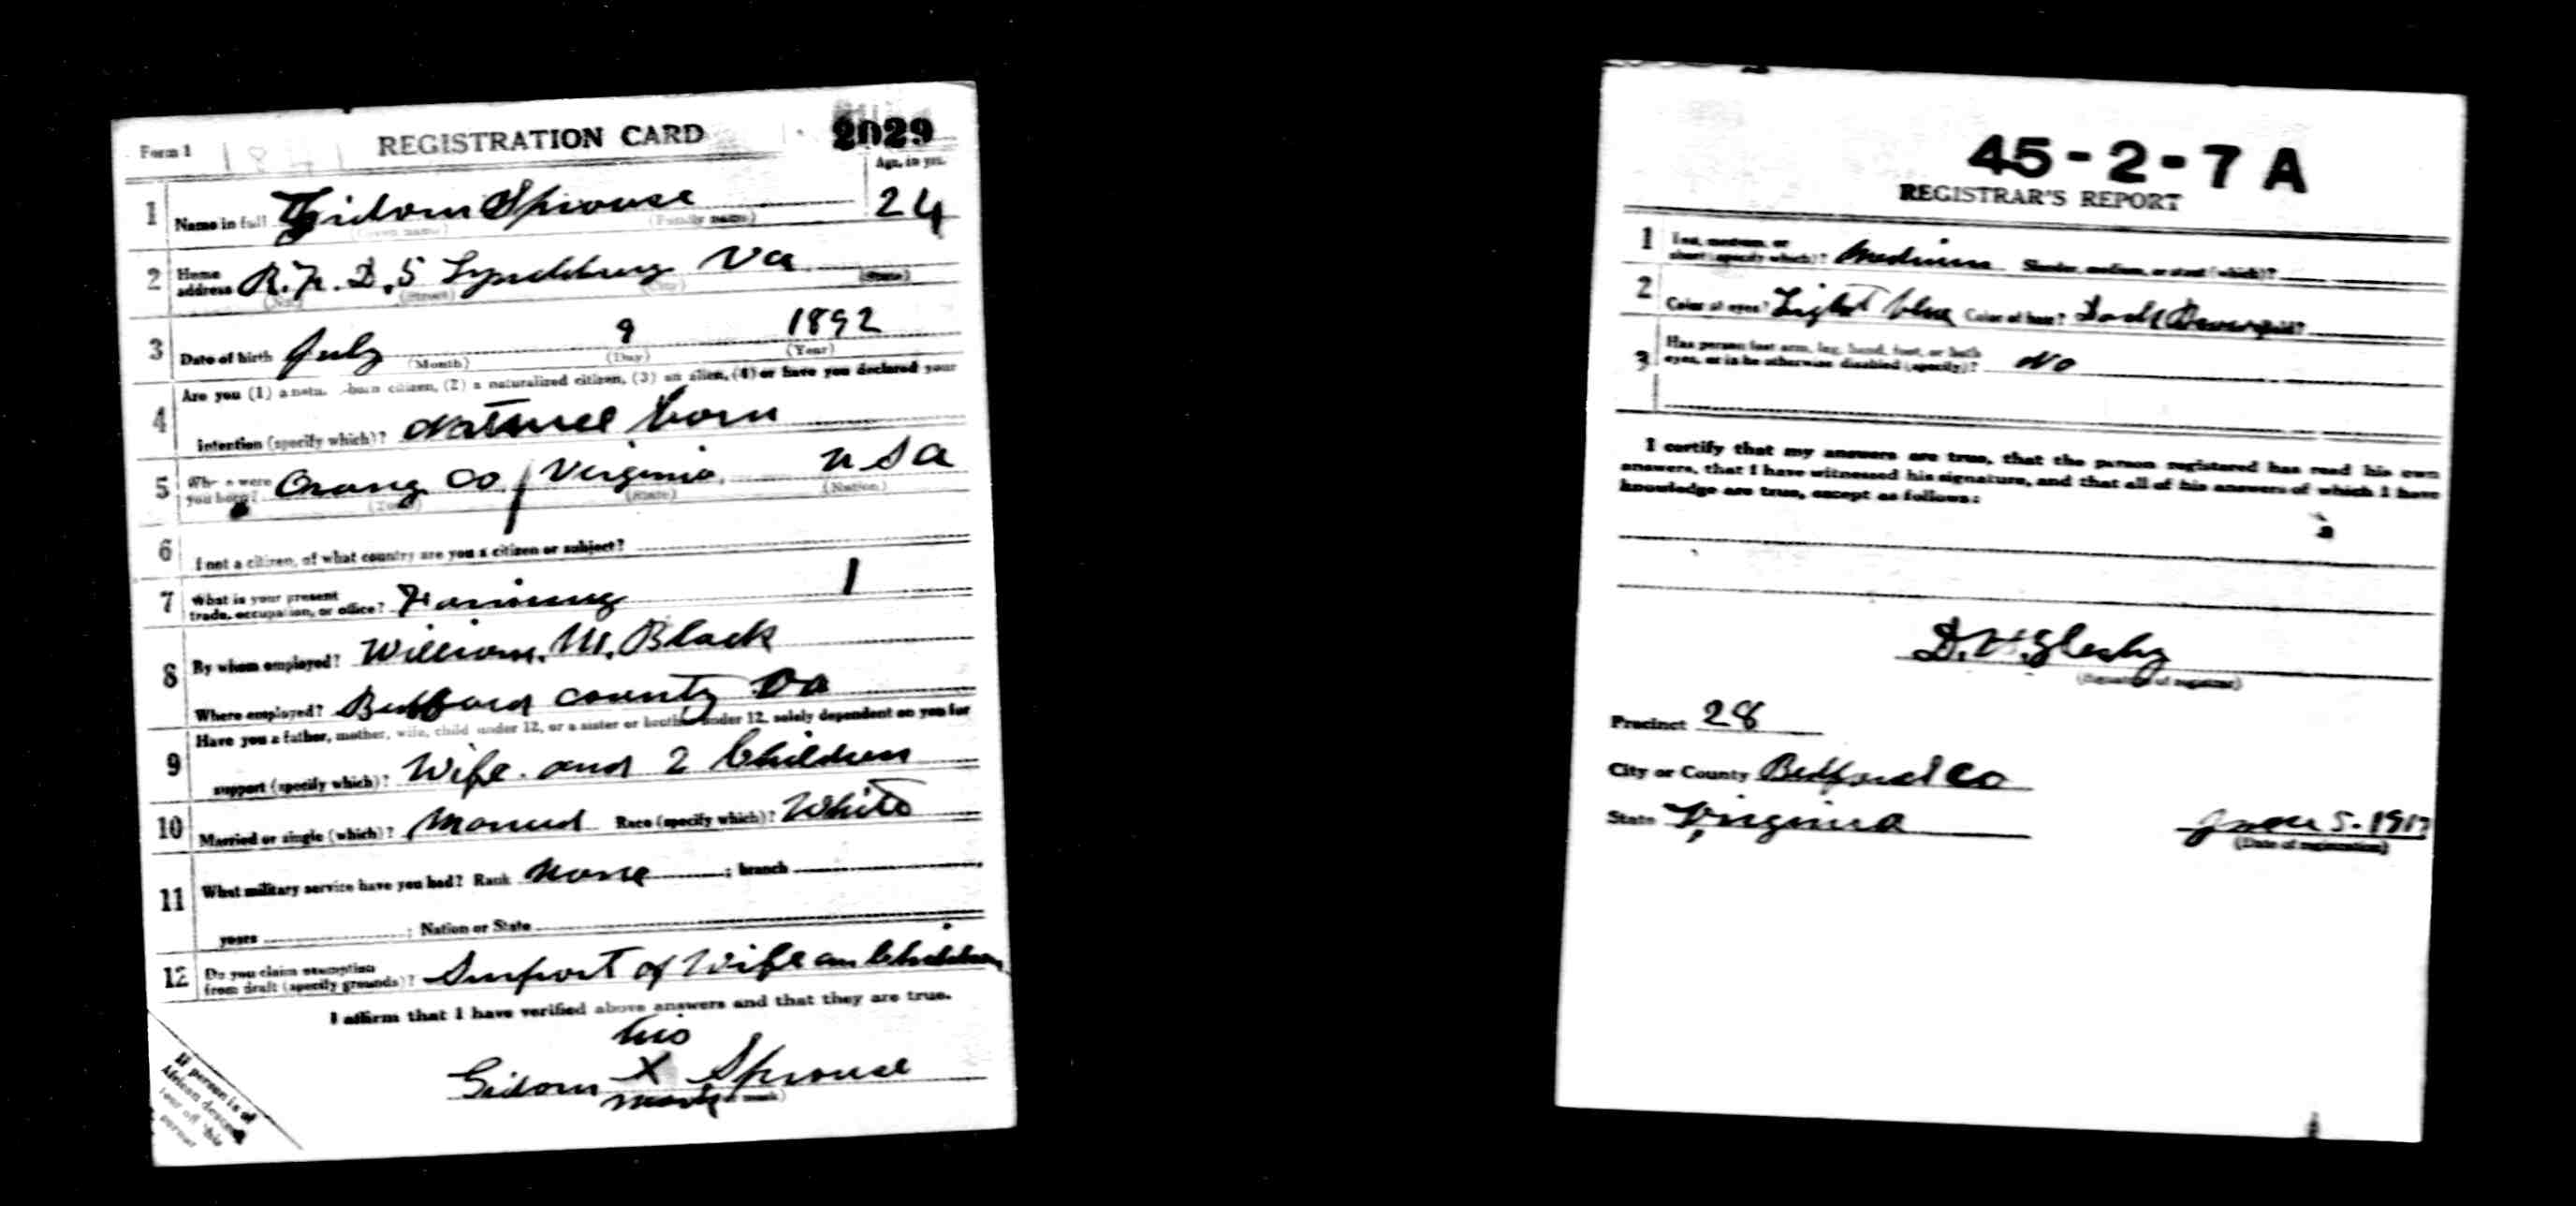 Form 1
REGISTRATION CARD
2029
Age, in yrs.
1 Name in full Gidom Sprouse 24
(Given name) (Family name)
2 Home address R. F. D. 5 Lynchburg Va
(No.) (Street) (City) (State)
3 Date of birth July 9 1892
(Month) (Day) (Year)
4 Are you (1) a natu -born citizen, (2) a naturalized citizen, (3) an alien, (4) or have you declared your
intention (specify which)? Natural born
5 Where were you born? Orang Co / Virginia, U S A
(Town) (State) (Nation)
6 I not a citizen, of what country are you a citizen or subject?
7 What is your present trade, occupation, or office? Farming 1
8 By whom employed? William. M. Black
Where employed? Bedford County Va
9 Have you a father, mother, wife, child under 12, or a sister or brother under 12, solely dependent on you for
support (specify which)? Wife. and 2 Children
10 Married or single (which)? Married Race (specify which)? White
11 What military service have you had? Rank None ; branch
years ; Nation or State
12 Do you claim exemption from draft (specify grounds)? Support of Wife an Children
I affirm that I have verified above answers and that they are true.
his
Gidom X Sprouse
mark
If person is of
African descent
tear off this
corner
45-2-7 A
REGISTRAR'S REPORT
1 Tall, medium, or short (specify which)? Medium Slender, medium, or stout (which)?
2 Color of eyes? Light blue Color of hair? Dark Brown
3 Has person lost arm, leg, hand, foot, or both eyes, or is he otherwise disabled (specify)? No
I certify that my answers are true, that the person registered has read his own
answers, that I have witnessed his signature, and that all of his answers of which I have
knowledge are true, except as follows:
(Signature of registrar)
Precinct 28
City or County Bedford Co
State Virginia June 5. 1917
(Date of registration)